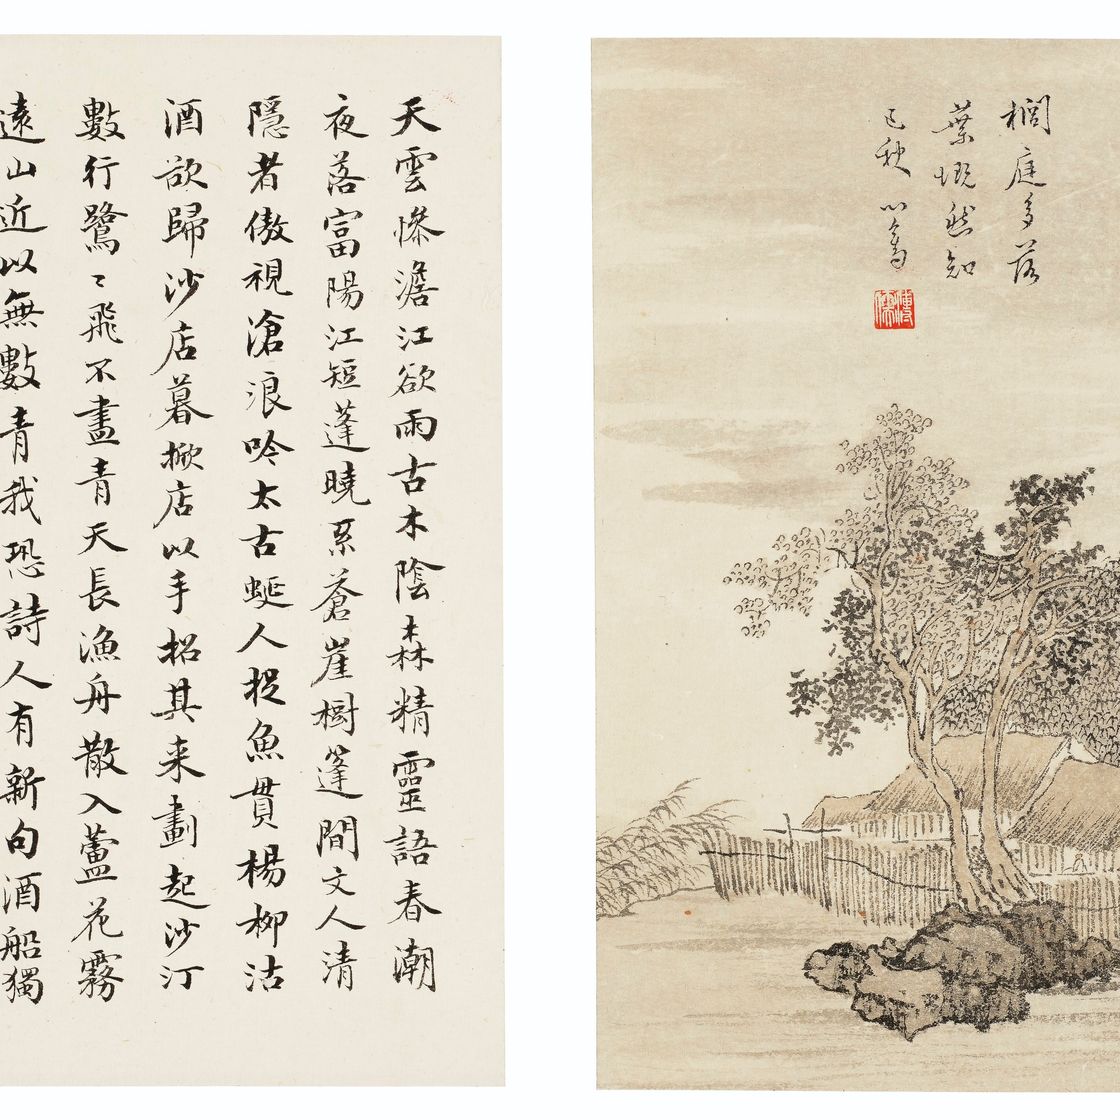 天雲慘澹江欲雨古木陰森精靈語春潮
夜落富陽江短蓬曉系蒼崖樹篷間文人清
隱者傲視滄浪吟太古蜒人捉魚貫楊柳沽
酒欲歸沙店暮掀店以手招其来劃起沙汀
數行鷺〻飛不盡青天長漁舟散入蘆花霧
遠山近以無數青我恐詩人有新句酒船獨
櫚庭多落
葉慨然知
已秋 心畬
溥儒